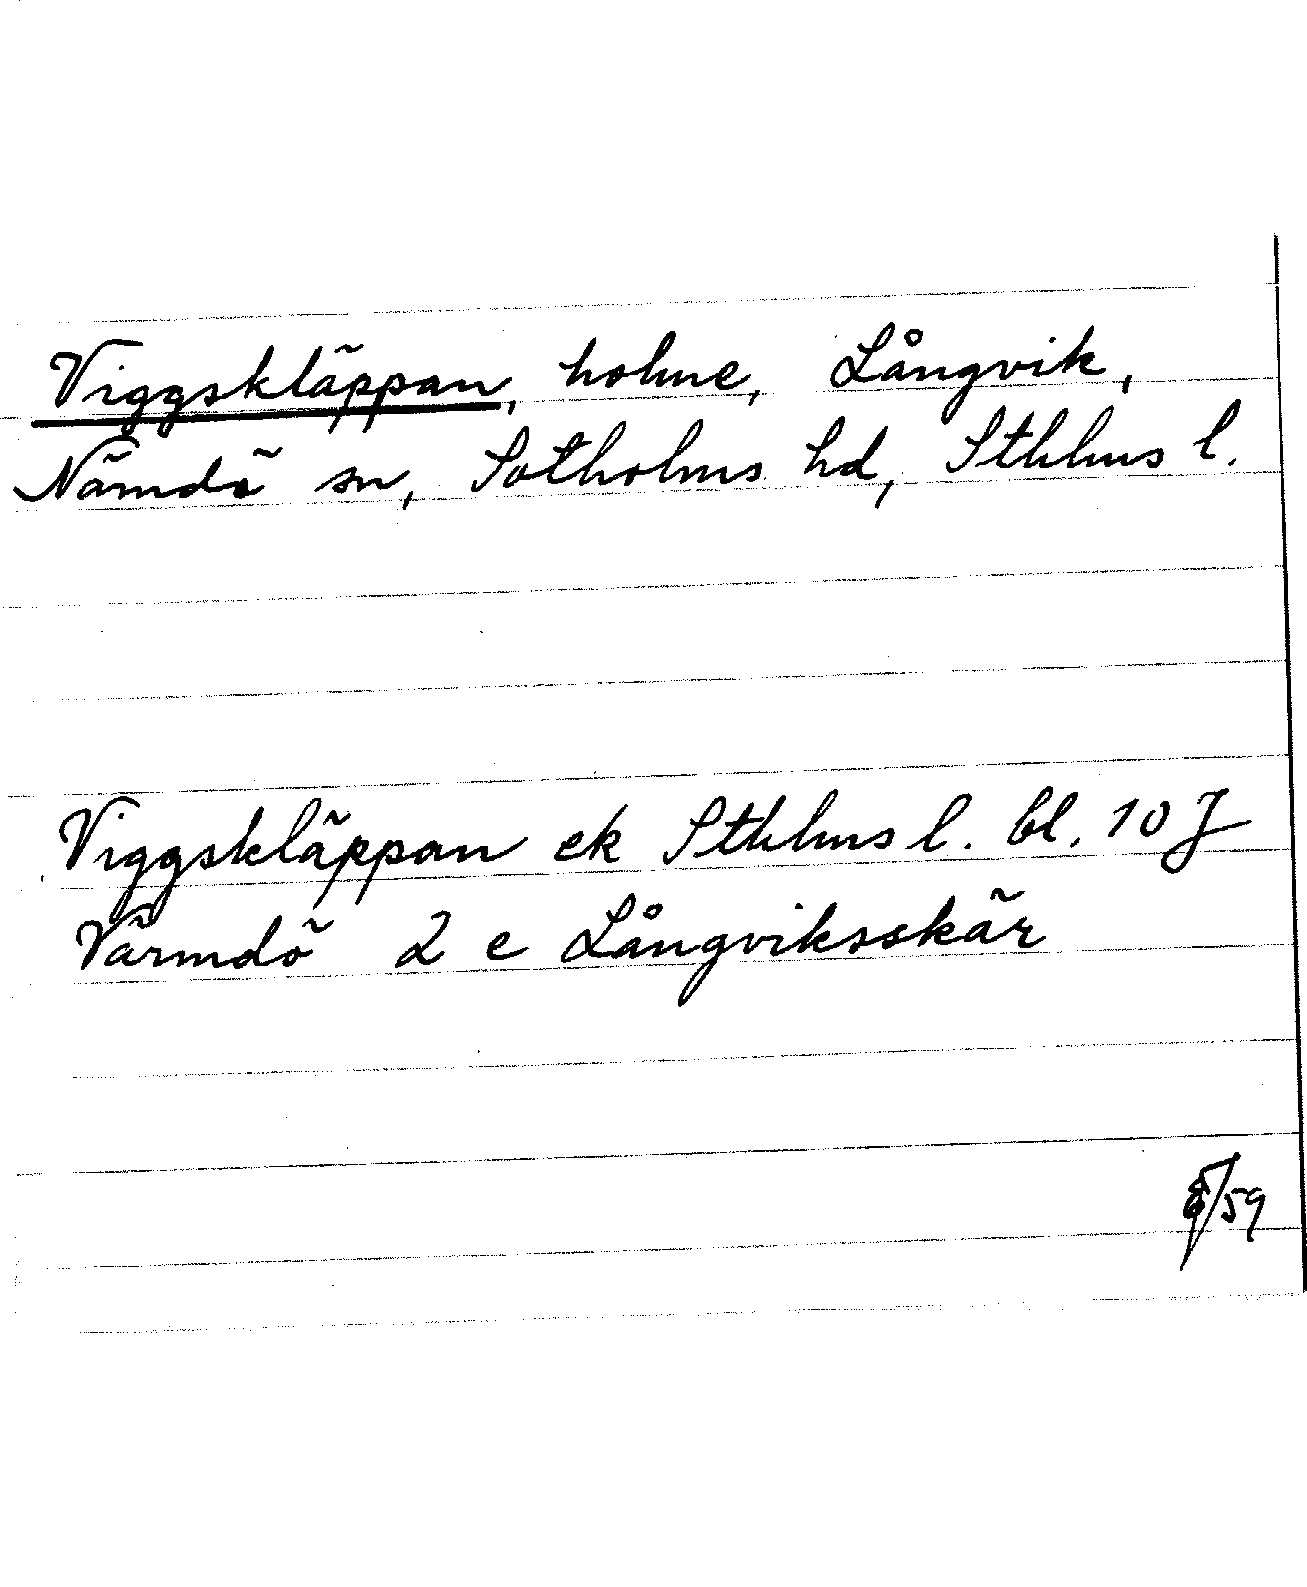 Viggskläppan, holme, Långvik,
Nämdö sn, Sotholms hd, Sthlms l.
Viggskläppan ek Sthlms l. bl. 10 J
Värmdö 2 e Långviksskär
/59